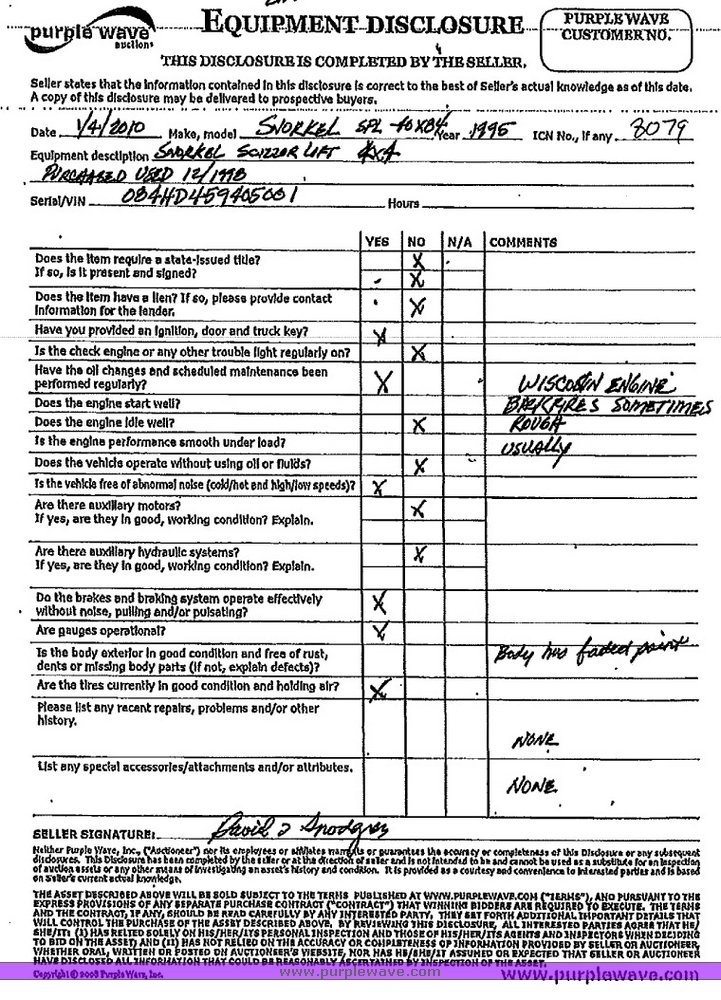 purple wave
auctions
EQUIPMENT DISCLOSURE
PURPLE WAVE
CUSTOMER NO.
THIS DISCLOSURE IS COMPLETED BY THE SELLER.
Seller states that the information contained in this disclosure is correct to the best of Seller's actual knowledge as of this date.
A copy of this disclosure may be delivered to prospective buyers.
Date 1/4/2010 Make, model SNORKEL SPL Year 1995 ICN No., if any 3079
Equipment description SNORKEL SCIZZOR LIFT 4x4
PURCHASED USED 12/1998
Serial/VIN Hours
YES NO N/A COMMENTS
Does the item require a state-issued title? X
If so, is it present and signed? X
Does the item have a lien? If so, please provide contact
information for the lender. X
Have you provided an ignition, door and truck key? X
Is the check engine or any other trouble light regularly on? X
Have the oil changes and scheduled maintenance been
performed regularly? X WISCOSIN ENGINE
Does the engine start well? BACKFIRES SOMETIMES
Does the engine idle well? X ROUGH
Is the engine performance smooth under load? USUALLY
Does the vehicle operate without using oil or fluids? X
Is the vehicle free of abnormal noise (cold/hot and high/low speeds)? X
Are there auxiliary motors? X
If yes, are they in good, working condition? Explain.
Are there auxiliary hydraulic systems? X
If yes, are they in good, working condition? Explain.
Do the brakes and braking system operate effectively
without noise, pulling and/or pulsating? X
Are gauges operational? X
Is the body exterior in good condition and free of rust,
dents or missing body parts (if not, explain defects)? Body has faded paint
Are the tires currently in good condition and holding air? X
Please list any recent repairs, problems and/or other
history.
NONE
List any special accessories/attachments and/or attributes.
NONE
SELLER SIGNATURE: David J Snodgrass
Neither Purple Wave, Inc., ("Auctioneer") nor its employees or affiliates warrants or guarantees the accuracy or completeness of this Disclosure or any subsequent
disclosures. This Disclosure has been completed by the seller or at the direction of seller and is not intended to be and cannot be used as a substitute for an inspection
of auction assets or any other means of investigating an asset's history and condition. It is provided as a courtesy and convenience to interested parties and is based
on Seller's current actual knowledge.
THE ASSET DESCRIBED ABOVE WILL BE SOLD SUBJECT TO THE TERMS PUBLISHED AT WWW.PURPLEWAVE.COM ("TERMS"), AND PURSUANT TO THE
EXPRESS PROVISIONS OF ANY SEPARATE PURCHASE CONTRACT ("CONTRACT") THAT WINNING BIDDERS ARE REQUIRED TO EXECUTE. THE TERMS
AND THE CONTRACT, IF ANY, SHOULD BE READ CAREFULLY BY ANY INTERESTED PARTY, THEY SET FORTH ADDITIONAL IMPORTANT DETAILS THAT
WILL CONTROL THE PURCHASE OF THE ASSET DESCRIBED ABOVE. BY REVIEWING THIS DISCLOSURE, ALL INTERESTED PARTIES AGREE THAT HE/
SHE/IT: (I) HAS RELIED SOLELY ON HIS/HER/ITS PERSONAL INSPECTION AND THOSE OF HIS/HER/ITS AGENTS AND INSPECTORS WHEN DECIDING
TO BID ON THE ASSET; AND (II) HAS NOT RELIED ON THE ACCURACY OR COMPLETENESS OF INFORMATION PROVIDED BY SELLER OR AUCTIONEER,
WHETHER ORAL, WRITTEN OR POSTED ON AUCTIONEER'S WEBSITE, NOR HAS HE/SHE/IT ASSUMED OR EXPECTED THAT SELLER OR AUCTIONEER
HAVE DISCLOSED ALL INFORMATION THAT COULD BE REASONABLY ASCERTAINED BY INSPECTION OF THE ASSET.
Copyright © 2008 Purple Wave, Inc. www.purplewave.com www.purplewave.com